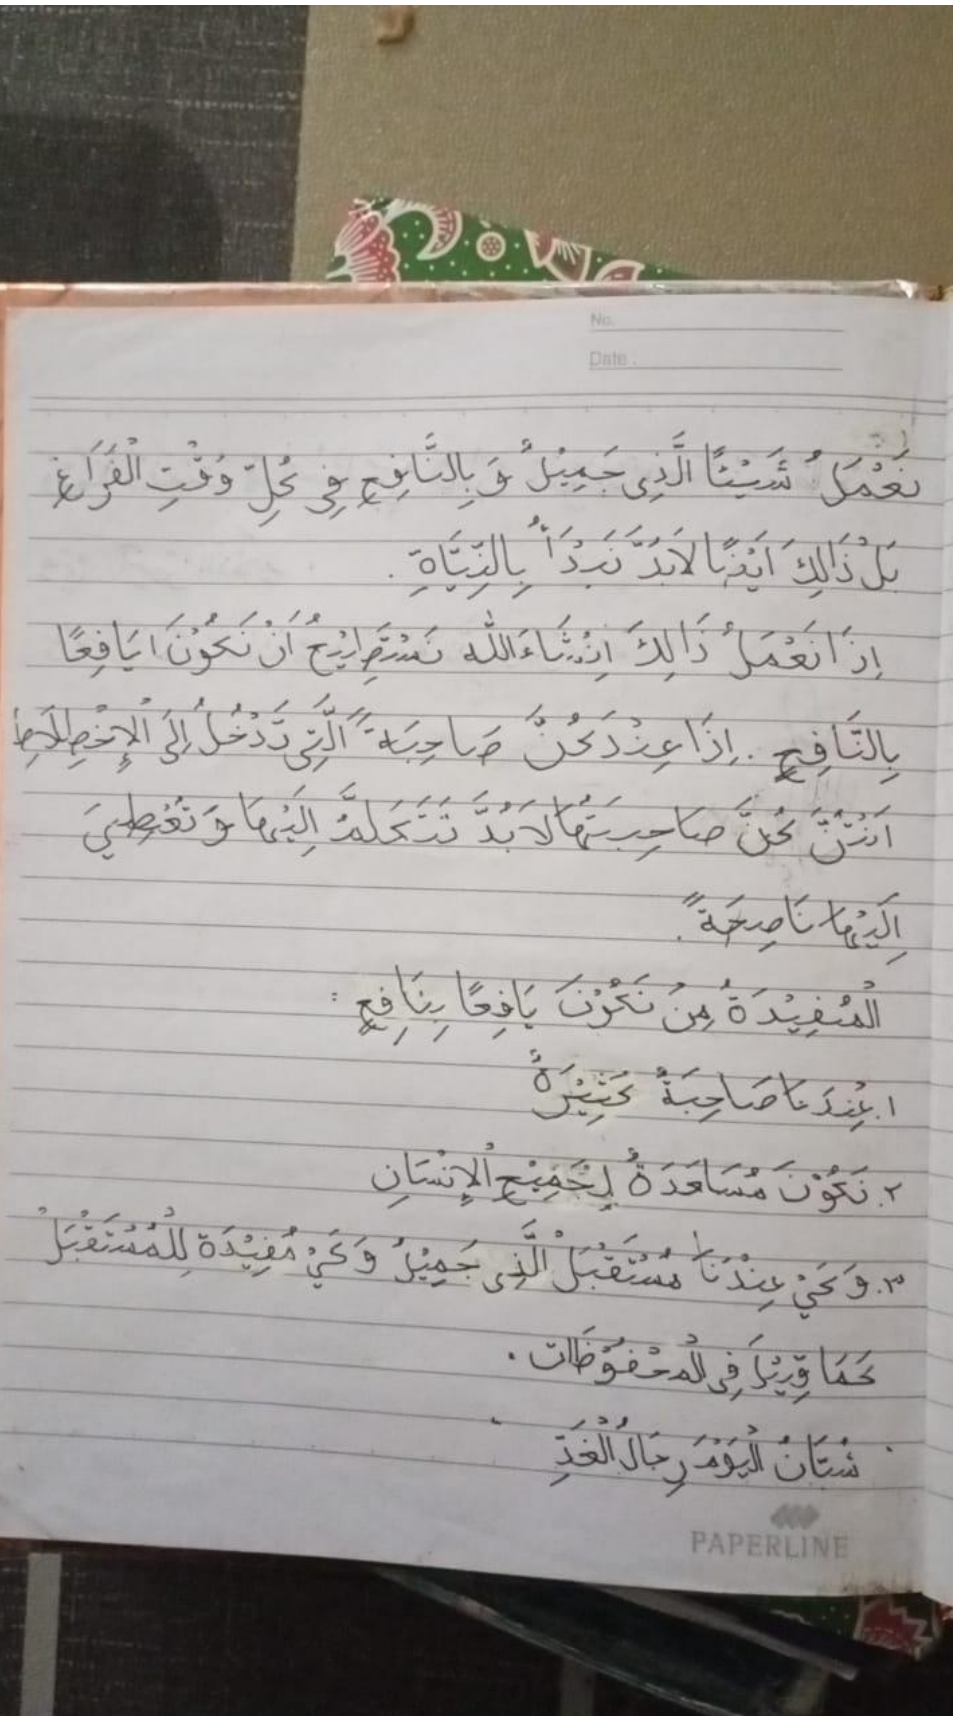 No.
Date :
نَعْمَلُ شَيْئًا الَّذِى جَمِيْلٌ وَ بِالنَّافِعِ فِى كُلِّ وَقْتِ الْفَرَاغِ
بَلْ ذَالِكَ اَيْضًا لَابُدَّ نَبْدَأُ بِالنِّيَّاةِ .
اِذَا نَعْمَلُ ذَالِكَ اِنْشَاءَ الله نَسْتَطِيْعُ اَنْ نَكُوْنَ ايَافِعًا
بِالنَّافِعِ . اِذَا عِنْدَكُنَّ صَاحِبَةً الَّتِى تَدْخُلُ اِلَى الْاِخْطِلَاطِ
اَنْتُنَّ كُلُّ صَاحِبَتِهَا لَابُدَّ تَتَكَلَّمُ اِلَيْهَا وَ تَعْطِيَ
اِلَيْهَا نَاصِحَةً .
الْمُفِيْدَةُ مِنْ نَكُوْنَ يَافِعًا بِنَافِعٍ :
١. عِنْدَنَا صَاحِبَةٌ كَثِيْرَةٌ
٢. نَكُوْنَ مُسَاعَدَةٌ لِجَمِيْعِ الْاِنْسَانِ
٣. وَ كَيْ عِنْدَنَا مُسْتَقْبَلُ الَّذِى جَمِيْلٌ وَ كَيْ مُفِيْدَة لِلْمُسْتَقْبَلْ
كَمَا قِيْلَ فِى الْمَحْفُوْظَات .
شُبَّانُ الْيَوْمَ رِجَالُ الْغَدِّ
PAPERLINE